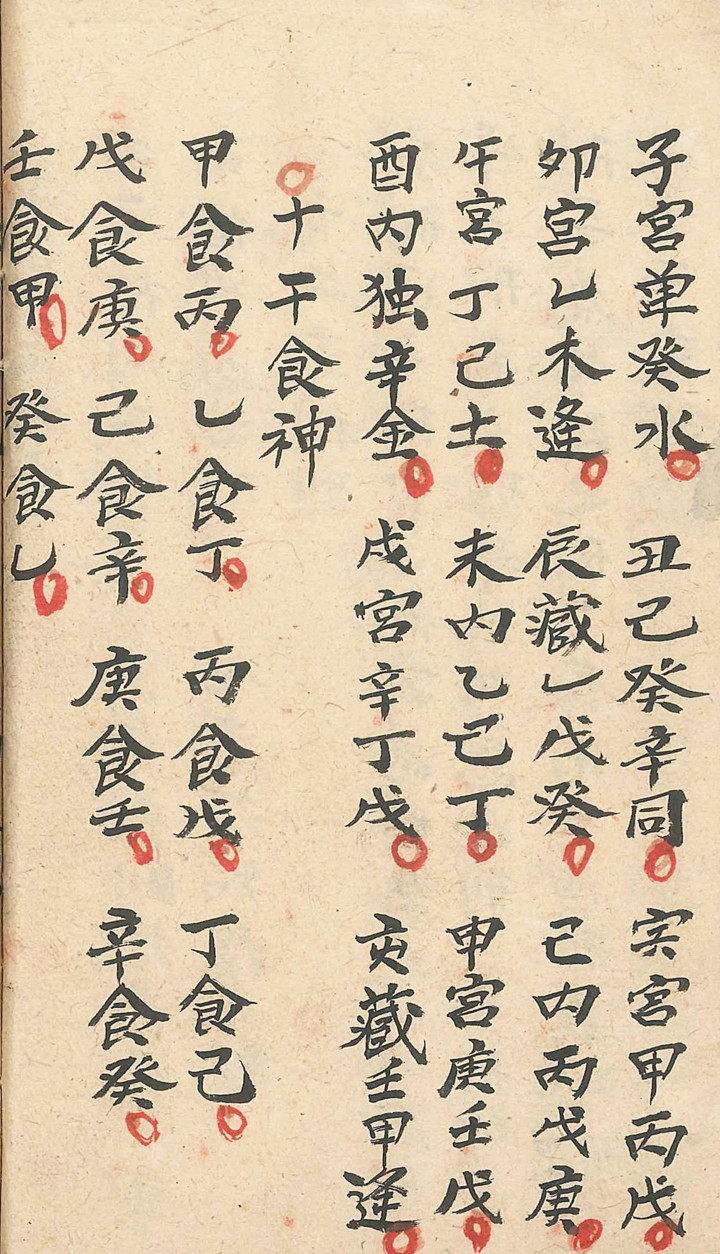 子宮单癸水 丑己癸辛同 寅宮甲丙戊
卯宮乙木逢 辰藏乙戊癸 巳内丙戊庚
午宮丁己土 未内乙己丁 申宮庚壬戊
酉内独辛金 戌宮辛丁戊 亥藏壬甲逢
十干食神
甲食丙 乙食丁 丙食戊 丁食己
戊食庚 己食辛 庚食壬 辛食癸
壬食甲 癸食乙